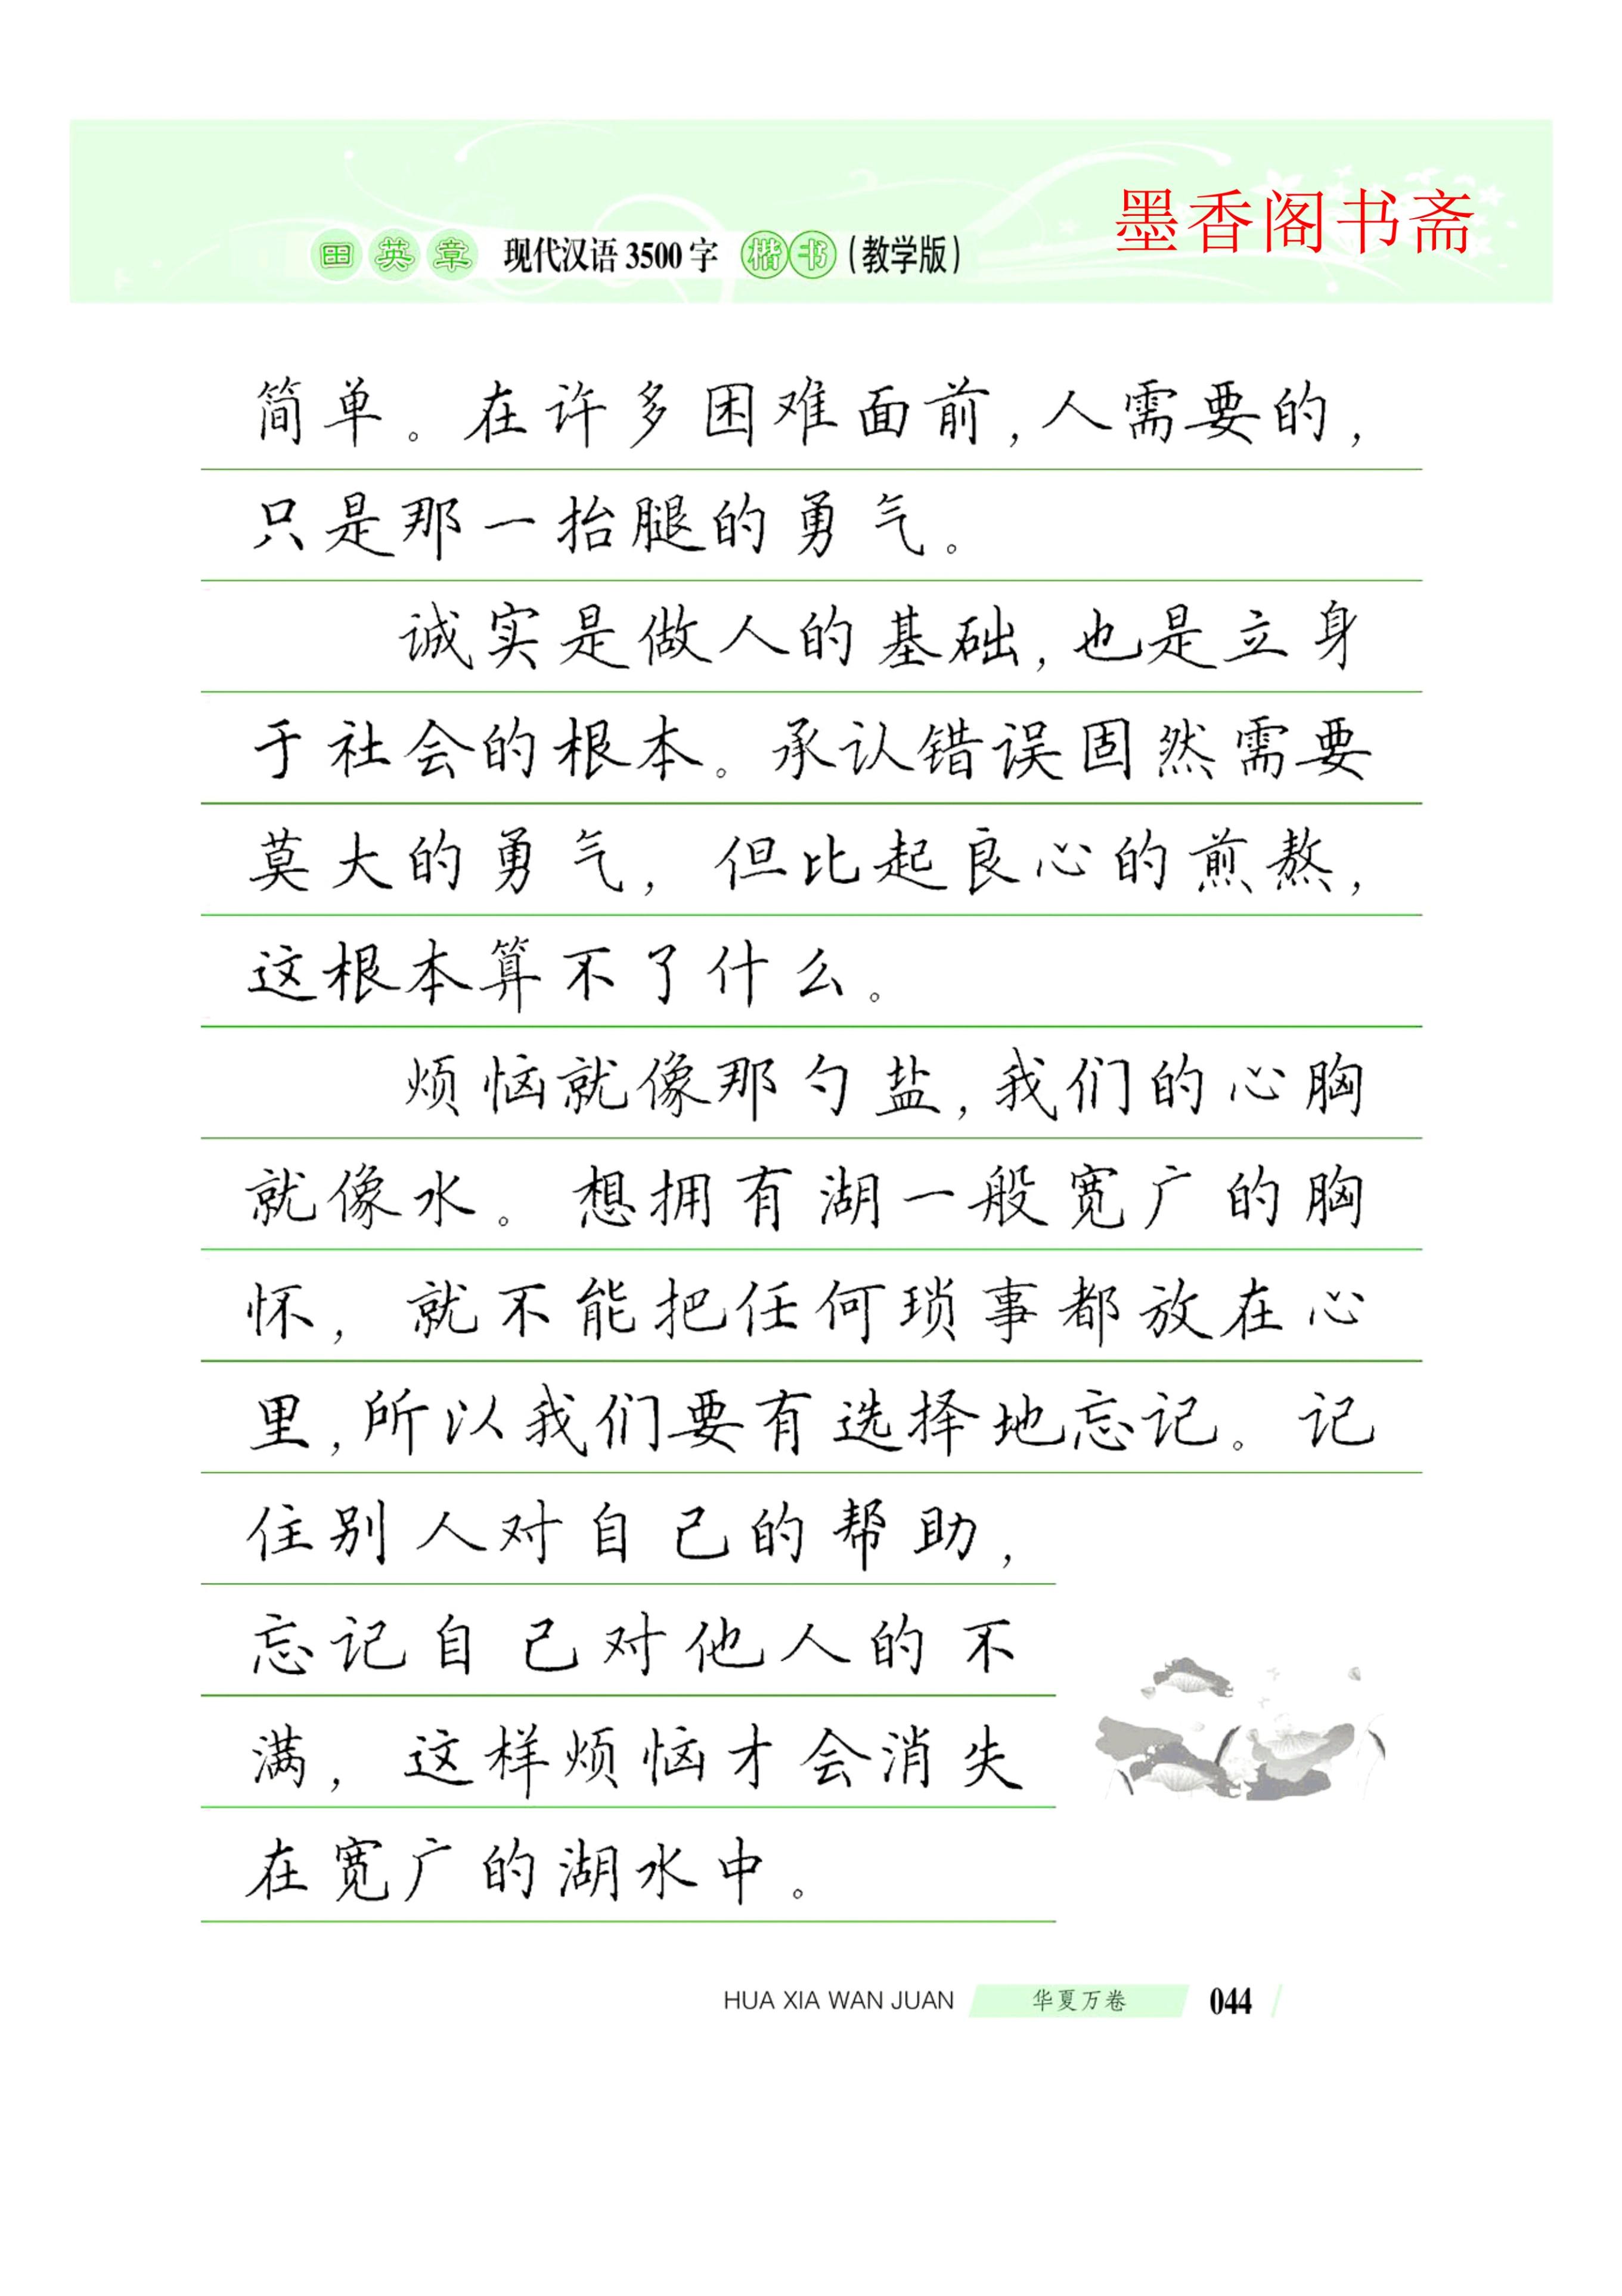 墨香阁书斋
田英章 现代汉语3500字 楷书(教学版)
简单。在许多困难面前,人需要的,
只是那一抬腿的勇气。
诚实是做人的基础,也是立身
于社会的根本。承认错误固然需要
莫大的勇气,但比起良心的煎熬,
这根本算不了什么。
烦恼就像那勺盐,我们的心胸
就像水。想拥有湖一般宽广的胸
怀,就不能把任何琐事都放在心
里,所以我们要有选择地忘记。记
住别人对自己的帮助,
忘记自己对他人的不
满,这样烦恼才会消失
在宽广的湖水中。
HUA XIA WAN JUAN 华夏万卷 044